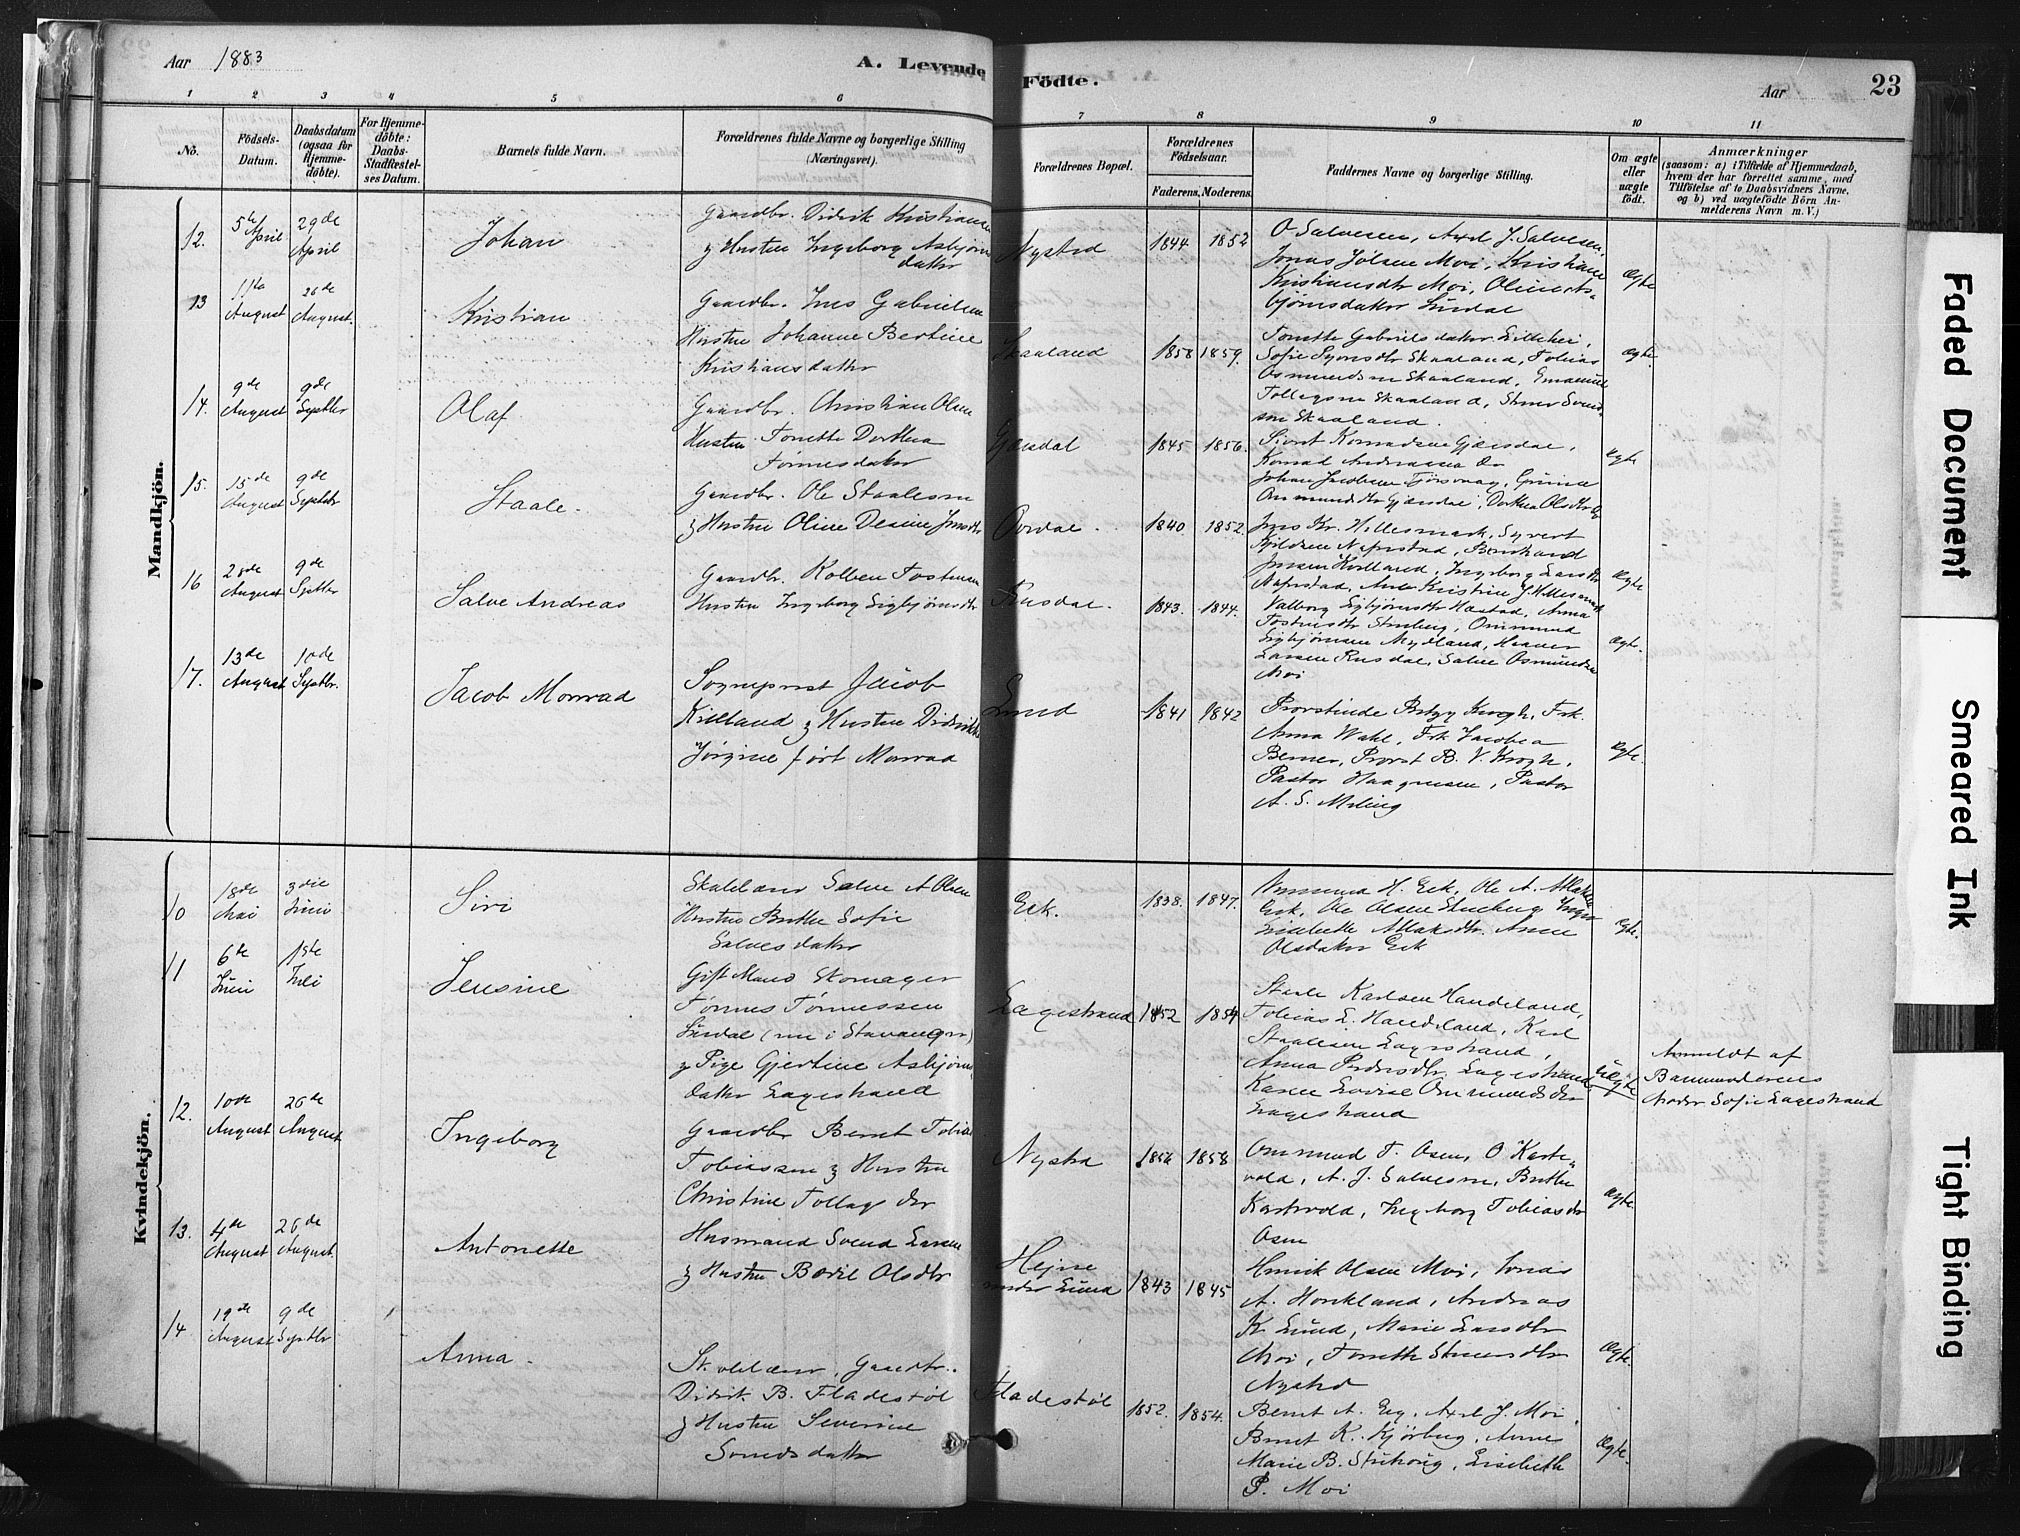 Aar 1883
A. Levende Födte.
Aar
23
1 2 3 4 5 6 7 8 9 10 11
No.
Födsels-Datum.
Daabsdatum (ogsaa for Hjemme-döbte).
For Hjemme-döbte: Daabs-Stadfæstel-ses Datum.
Barnets fulde Navn.
Forældrenes fulde Navne og borgerlige Stilling (Næringsvei).
Forældrenes Bopæl.
Forældrenes Födselsaar.
Faderens. Moderens.
Faddernes Navne og borgerlige Stilling.
Om ægte eller uægte födt.
Anmærkninger
(saasom: a) i Tilfælde af Hjemmedaab, hvem der har forrettet samme, med Tilföielse af to Daabsvidners Navne, og b) ved uægtefödte Börn Anmelderens Navn m. V.)
Mandkjön.
12. 5te April 29de April
Johan
Gaardbr. Didrik Kristiansen
& Hustru Ingeborg Asbjørns
datter
Nystad
1844 1852
O Salvesen, Axel J. Salvesen,
Jonas Jølsen Moi, Kristiane
Kristiansdtr Moi,
bjørnsdatter Surdal
Ægte
13 11te August 26de August.
Kristian
Gaardbr. Jens Gabrielsen
Hustru Johanne Bertine
Kristiansdatter
Skaaland
1858 1859.
Tonette Gabrielsdatter Lillehei,
Sofie Syvertsdtr Skaaland, Tobias
Osmundsen Skaaland, Emanuel
Tollegsen Skaaland,
Skaaland.
Ægte.
14. 9de August 9de Septbr
Olaf
Gaardbr. Christian Olsen
Hustru Tonette Dorthea
Tønnesdatter
Gjersdal
1845 1856.
Konradsen Gjersdal,
Konrad Andreassen Do
Johan Jacobsen
Ommundsdtr Gjersdal, Dorthea Olsdtr
Ægte
15. 15de August 9de Septbr
Staale.
Gaardbr. Ole Staalesen
& Hustru Oline Desine Jensdtr
1840 1852.
Jens Kr. Hellesmark, Syvert
Nafstad, Bernhard
Jensen, Ingeborg Larsdtr
Nafstad, Ane Kristine J. Hellesmark
Ægte
16 28de August 9de Septbr
Salve Andreas
Gaardbr. Kolben Tostensen
Hustru Ingeborg Sigbjørnsdtr
Rusdal.
1843. 1844.
Valborg Sigbjørnsdtr Hastad, Anna
Tostensdtr Stenberg, Ommund
Sigbjørnsen Mydland,
Larsen Rusdal, Salve Osmundsen
Moi
Ægte.
17. 13de August 10de Septbr.
Jacob Monrad
Sogneprest Jacob
Kielland & Hustru Didrikke
Jørgine født Monrad
Lund
1841 1842
Provstinde Betzy Krogh, Frk.
Anna Wahl, Frk Jacobea
Berner, Provst B. V. Krogh,
Pastor Haagensen, Pastor
A. S. Meling
Ægte.
Kvindekjön.
10 18de Mai 3die Juni
Siri
Skolelærer Salve A Olsen
Hustru Berthe Sofie
Salvesdatter
Eek.
1838. 1847.
Ommund H. Eek, Ole A. Atlaksen
Eek, Ole Olsen Steenberg
Lisebette Atlaksdtr. Anne
Olsdatter Eek
Ægte.
11 6te Juni 1ste Juli
Jensine
Gift Mand Skomager
Tønnes Tønnessen
Surdal (nu i Stavanger)
& Pige Gjertine Asbjørns
datter Eagestrand
Eagestrand
1852 1854
Staale Karlsen Handeland,
Tobias L. Handeland, Karl
Staalesen Eagestrand,
Anna Pedersdtr. Eagestrand
Karen Lovise Ommundsdtr
Eagestrand
Uægte
Anmeldt af
Barnmoderens
Moder Sofie Eagestrand
12. 10de August 26de August
Ingeborg
Gaardbr Bernt Tobias
Tobiassen & Hustru
Christine Tollagsdtr
Nystad
1856 1858
Ommund T. Osen, O Kaste-
vold, A. J. Salvesen, Berthe
Kastevold, Ingeborg Tobiasdtr
Osen
Ægte.
13. 4de August 26de August.
Antonette
Husmand Svend Larsen
& Hustru Bodil Olsdtr
Hejne
under Lund
1843 1845
Henrik Olsen Moi, Jonas
A. Haukland, Andreas
K Lund, Marie Larsdtr
Moi, Tonette Steensdtr
Nystad
Ægte.
14 19de August 9de Septbr
Anna.
Skolelærer, Gaardbr.
Didrik B. Fladestøl
& Hustru Severine
Svendsdatter
Fladestøl
1852. 1854.
Bernt A. Eeg, Axel J. Moi,
Bernt K. Kjørberg, Anne
Marie B., Lisebeth
P. Moi
Ægte.
Faded Document
Smeared Ink
Tight Binding